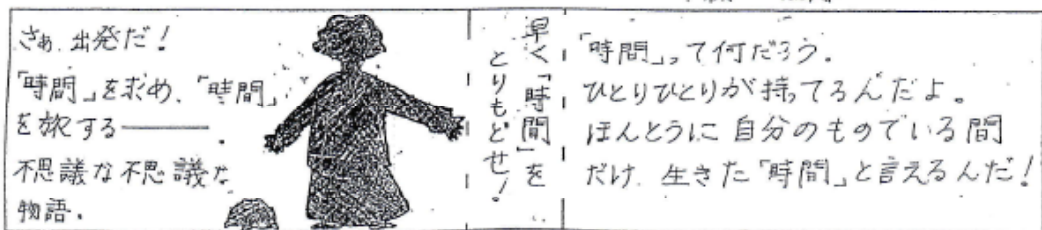 さぁ、出発だ!
「時間」を求め、「時間」
を旅する――。
不思議な不思議な
物語。
早く「時間」を
とりもどせ!
「時間」って何だろう。
ひとりひとりが持ってるんだよ。
ほんとうに自分のものでいる間
だけ、生きた「時間」と言えるんだ!